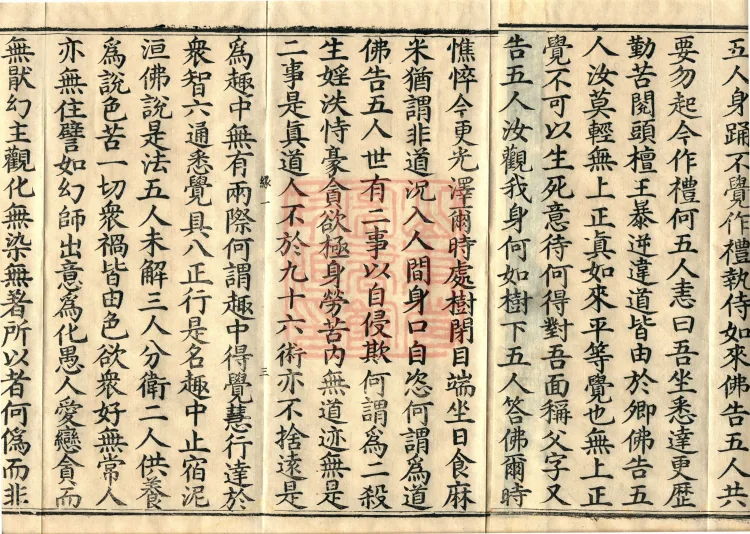 五人身踊不覺作禮執侍如來佛告五人共
要勿起今作禮何五人恚曰吾坐悉達更歷
勤苦閱頭檀王暴逆違道皆由於卿佛告五
人汝莫輕無上正真如來平等覺也無上正
覺不可以生死意待何得對吾面稱父字又
告五人汝觀我身何如樹下五人答佛爾時
憔悴今更光澤爾時處樹閉目端坐日食麻
米猶謂非道況入人間身口自恣何謂為道
佛告五人世有二事以自侵欺何謂為二殺
生婬泆恃豪貪欲極身勞苦內無道迹無是
二事是真道人不於九十六術亦不捨遠是
緣一
三
為趣中無有兩際何謂趣中得覺慧行達於
衆智六通悉覺具八正行是名趣中止宿泥
洹佛說是法五人未解三人分衛二人供養
為說色苦一切衆禍皆由色欲衆好無常人
亦無住譬如幻師出意為化愚人愛戀貪而
無猒幻主觀化無染無著所以者何偽而非